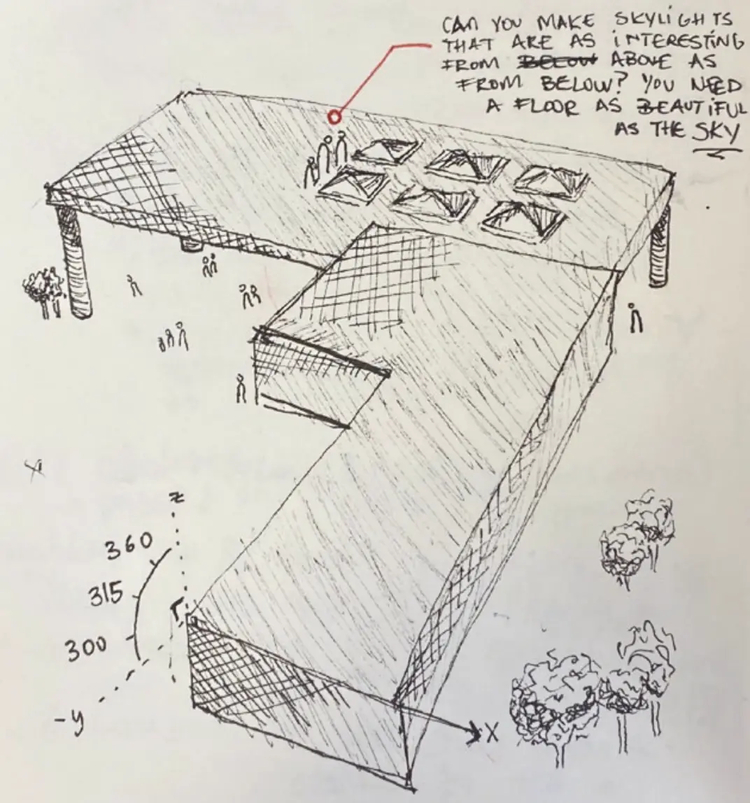 CAN YOU MAKE SKYLIGHTS
THAT ARE AS INTERESTING
FROM BELOW ABOVE AS
FROM BELOW? YOU NEED
A FLOOR AS BEAUTIFUL
AS THE SKY
z
360
315
300
-y
X